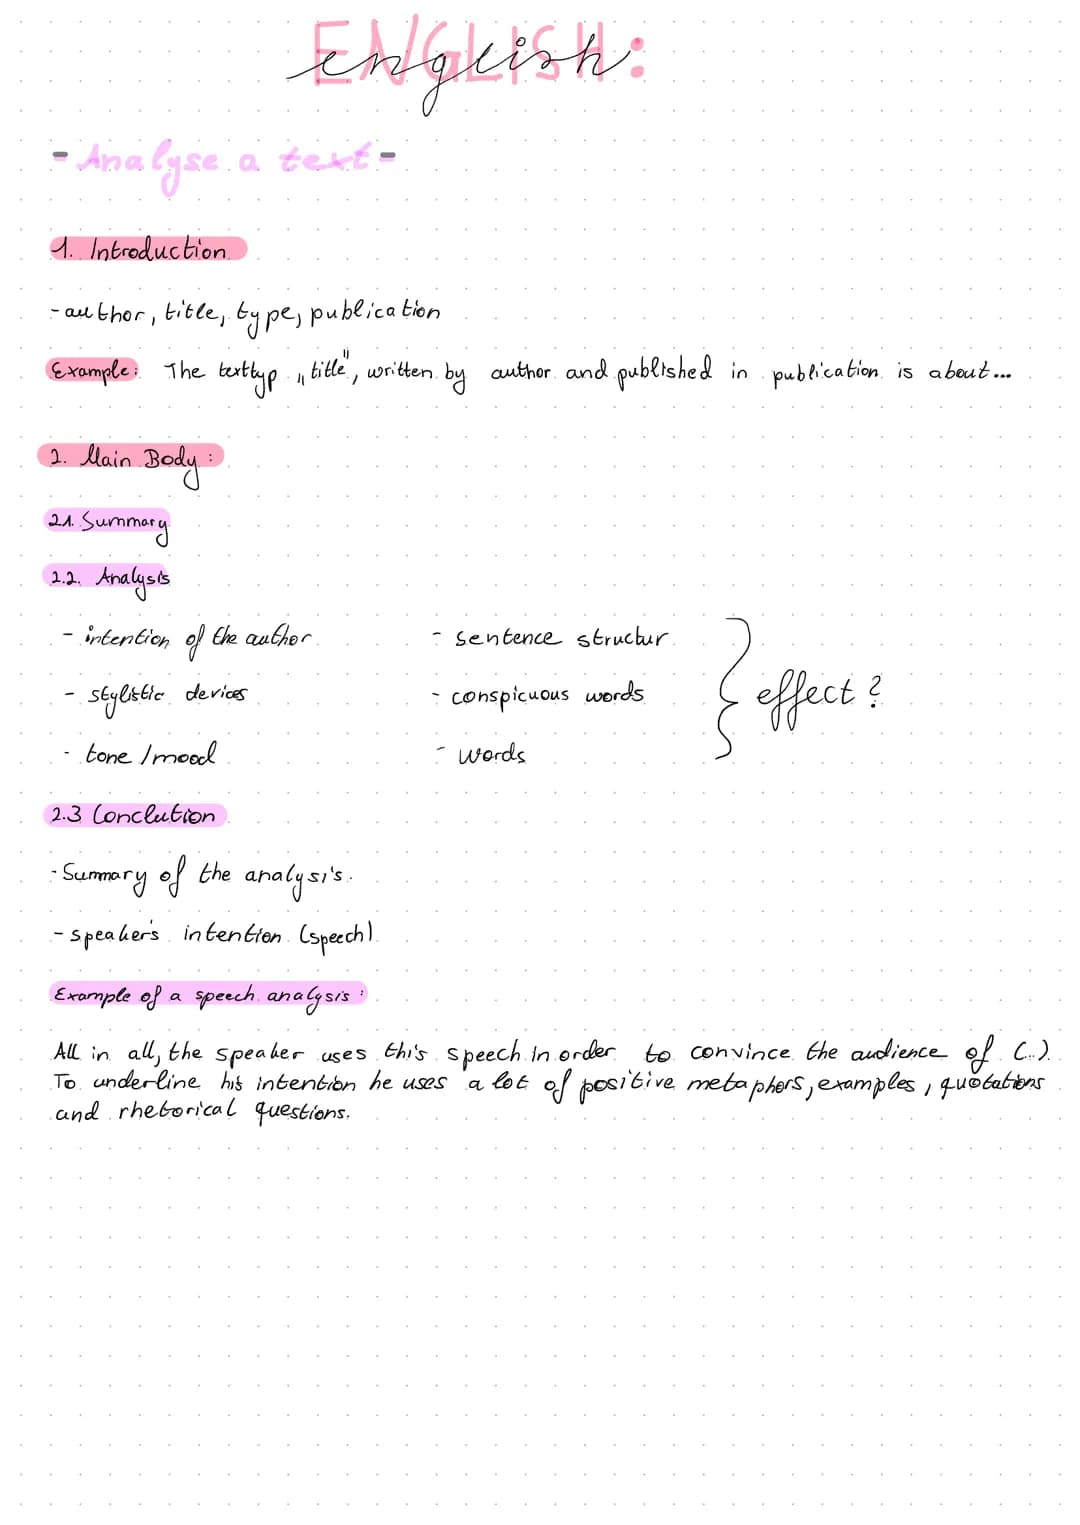 ENGLISH:
english
- Analyse a text -
1. Introduction
- author, title, type, publication
Example: The texttyp „title", written by author and published in publication is about...
2. Main Body:
2.1. Summary
2.2. Analysis
- intention of the author
- sentence structur
- stylistic devices
- conspicuous words
- tone / mood
- words
} effect?
2.3 Conclution
- Summary of the analysis.
- speakers intention (speech)
Example of a speech analysis:
All in all, the speaker uses this speech in order to convince the audience of (...).
To underline his intention he uses a lot of positive metaphers, examples, quotations
and rhetorical questions.